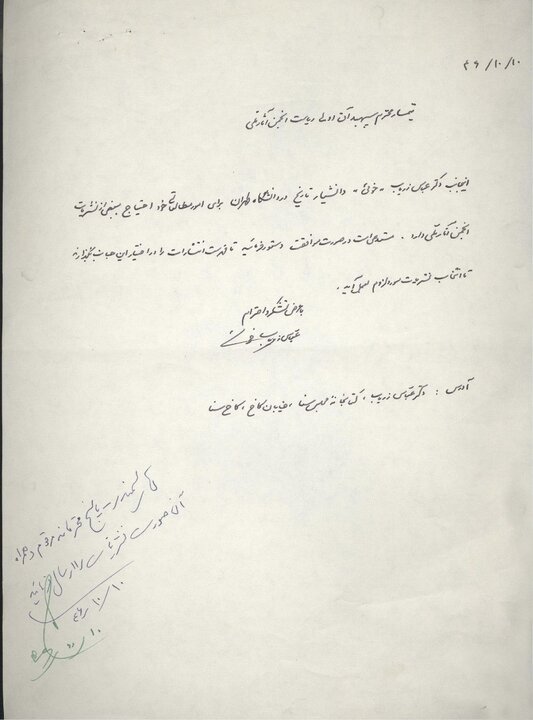 ۴۶/۱۰/۱۰
تیمسار محترم سپهبد آق اولی ریاست انجمن آثار ملی
اینجانب دکتر عباس زریاب «خوئی» دانشیار تاریخ در دانشگاه طهران برای امور مطالعاتی خود احتیاج ببعضی از نشریات
انجمن آثار ملی دارد. مستدعی است در صورت موافقت دستور فرمائید تا فهرست انتشارات را در اختیار این جانب بگذارند
تا انتخاب نشریات مورد لزوم بعمل آید.
با عرض تشکر و احترام
عباس زریاب خوئی
آدرس: دکتر عباس زریاب، کتابخانه مجلس سنا، خیابان کاخ، کاخ سنا
پاسخ محترمانه مرقوم و همراه
آن صورت نشریات را ارسال
۴۶/۱۰/۱۰